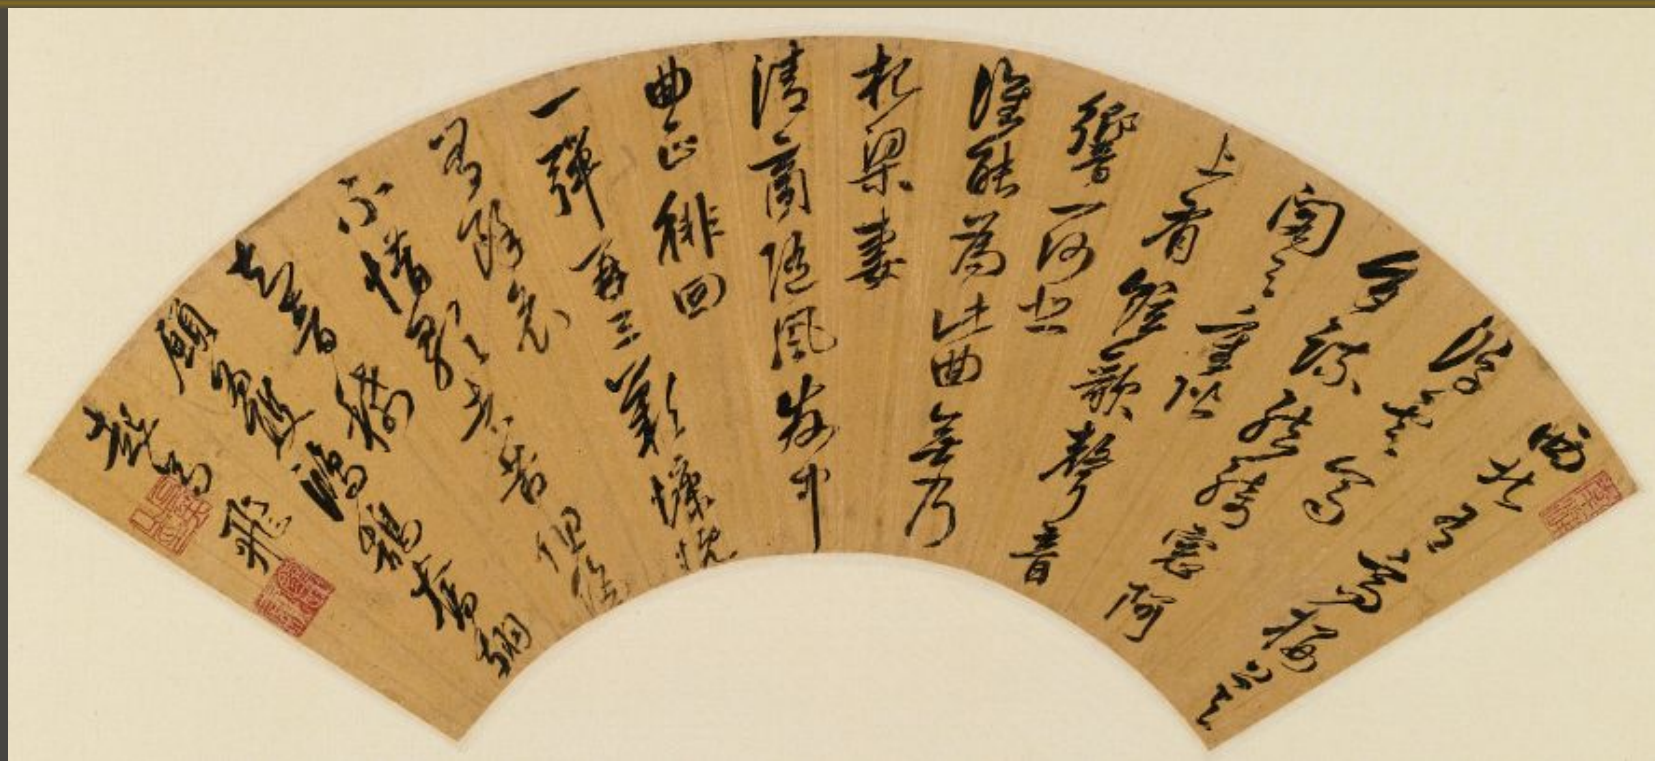 西北有高樓上与
浮雲齊
交疏結綺窓阿
閣三重階
上有絃歌聲音
響一何悲
誰能為此曲無乃
杞梁妻
清商隨風發中
曲正徘回
一彈再三歎慷慨
有餘哀
不惜歌者苦但傷
知音稀
願為雙鴻鵠奮翅
起高飛